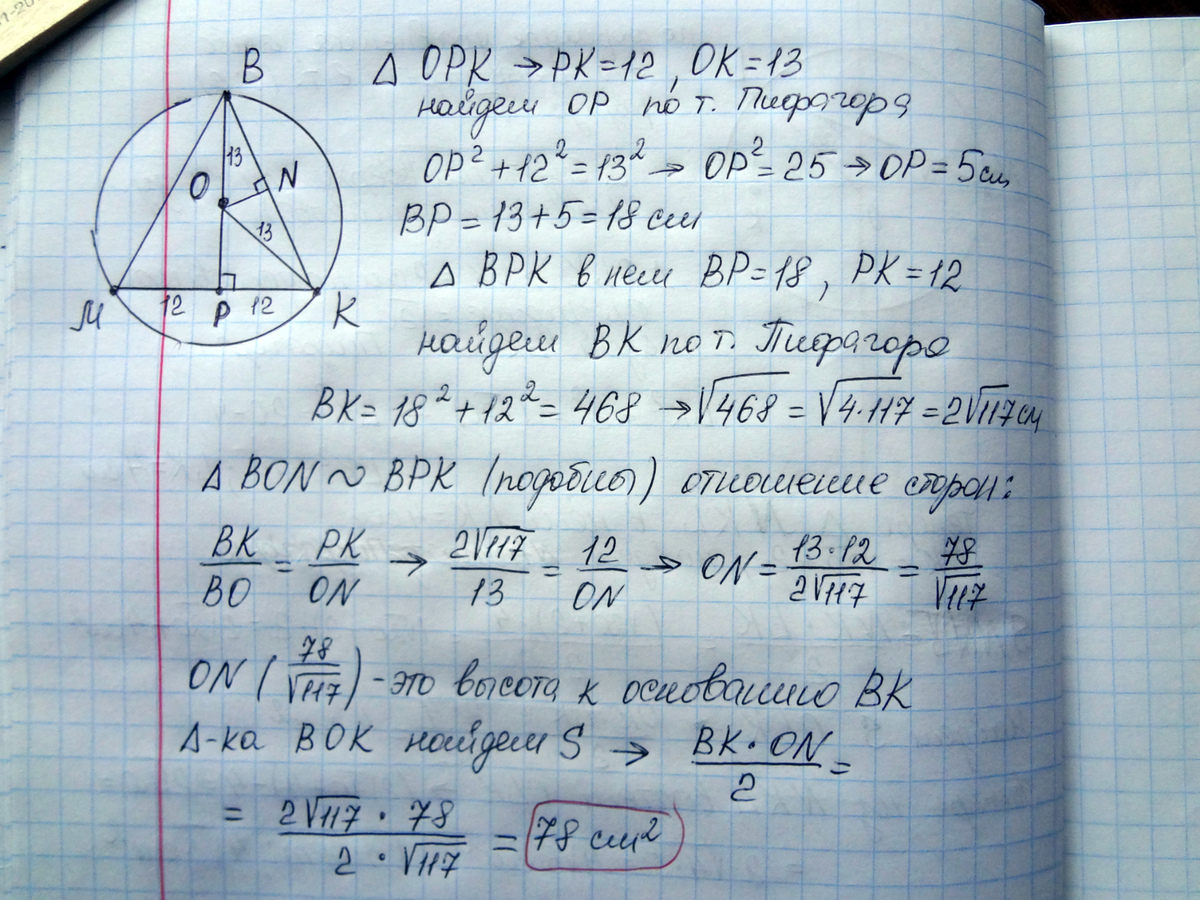 Δ OPK → PK=12, OK=13
найдем OP по т. Пифагора
OP² + 12² = 13² → OP² = 25 → OP = 5см
BP = 13+5 = 18 см
Δ BPK в нем BP=18, PK=12
найдем BK по т. Пифагора
BK = 18² + 12² = 468 → √468 = √4·117 = 2√117 см
Δ BON ~ BPK (подобны) отношение сторон:
BK/BO = PK/ON → 2√117/13 = 12/ON → ON = 13·12/2√117 = 78/√117
ON (78/√117) - это высота к основанию BK
Δ-ка BOK найдем S → BK·ON/2 =
= 2√117 · 78/2 · √117 = 78 см²
B
13
O
N
13
M
12
P
12
K